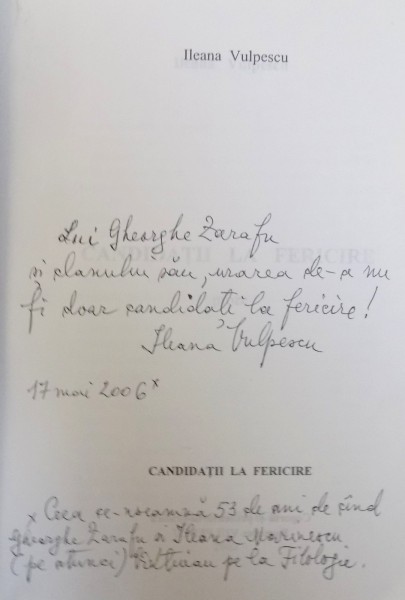 Ileana Vulpescu
Lui Gheorghe Zarafu
și clanului său, urarea de-a nu
fi doar candidați la fericire!
Ileana Vulpescu
17 mai 2006 x
CANDIDAȚII LA FERICIRE
x Ceea ce-nseamnă 53 de ani de cînd
Gheorghe Zarafu și Ileana Marinescu
(pe atunci) viețuiau pe la Filologie.